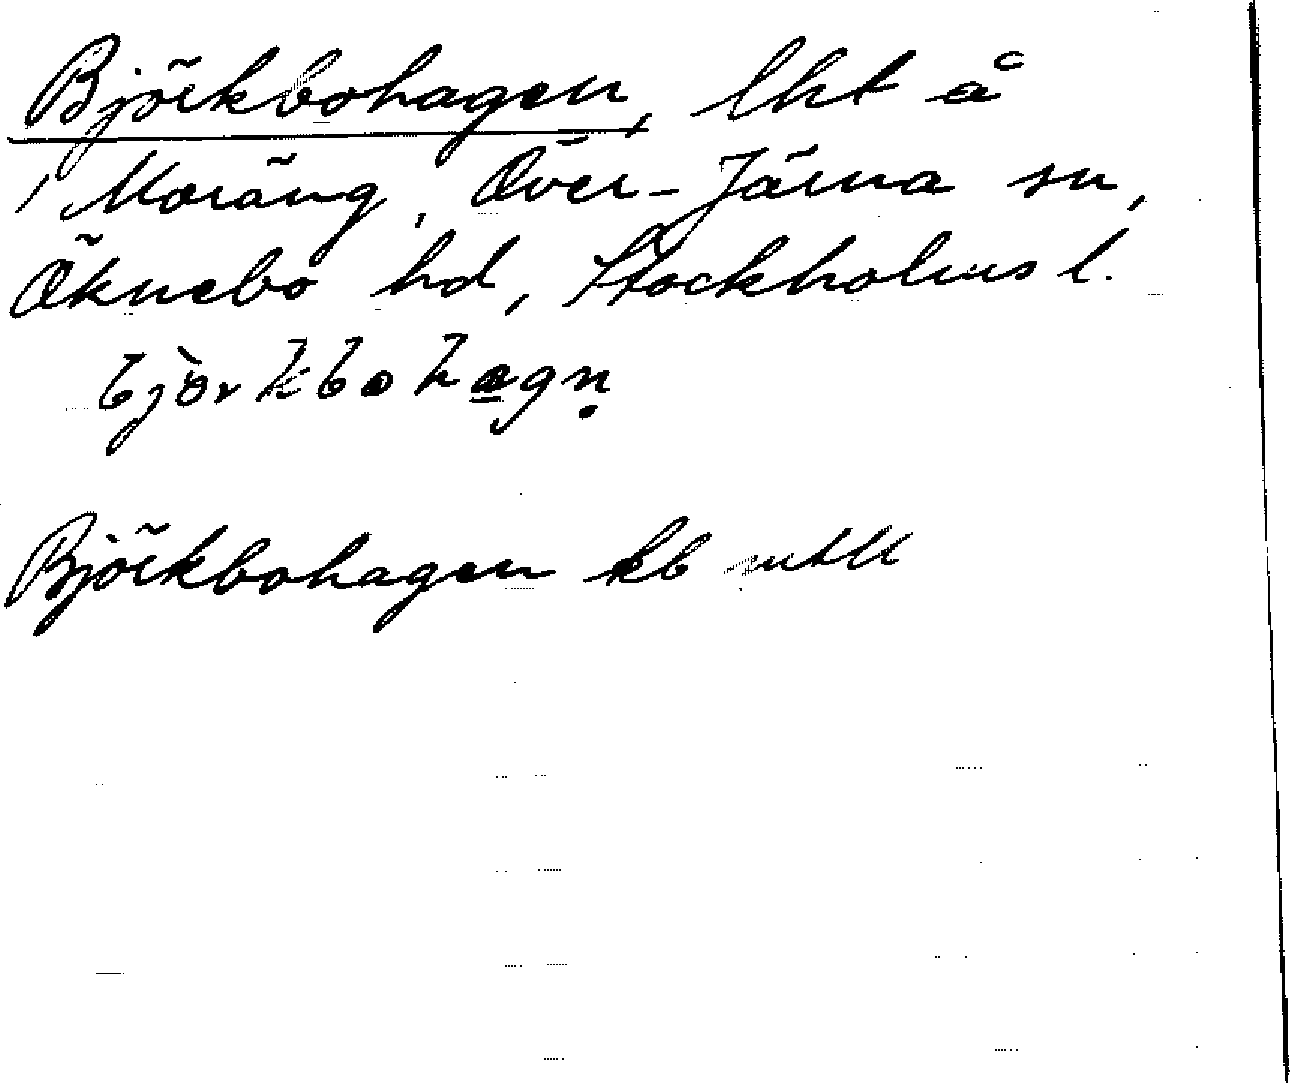 Björkbohagen, lht å
1 Moräng, Över-Järna sn,
Öknebo hd, Stockholms l.
bjö̀rkbohagn̥
Björkbohagen kb mtll